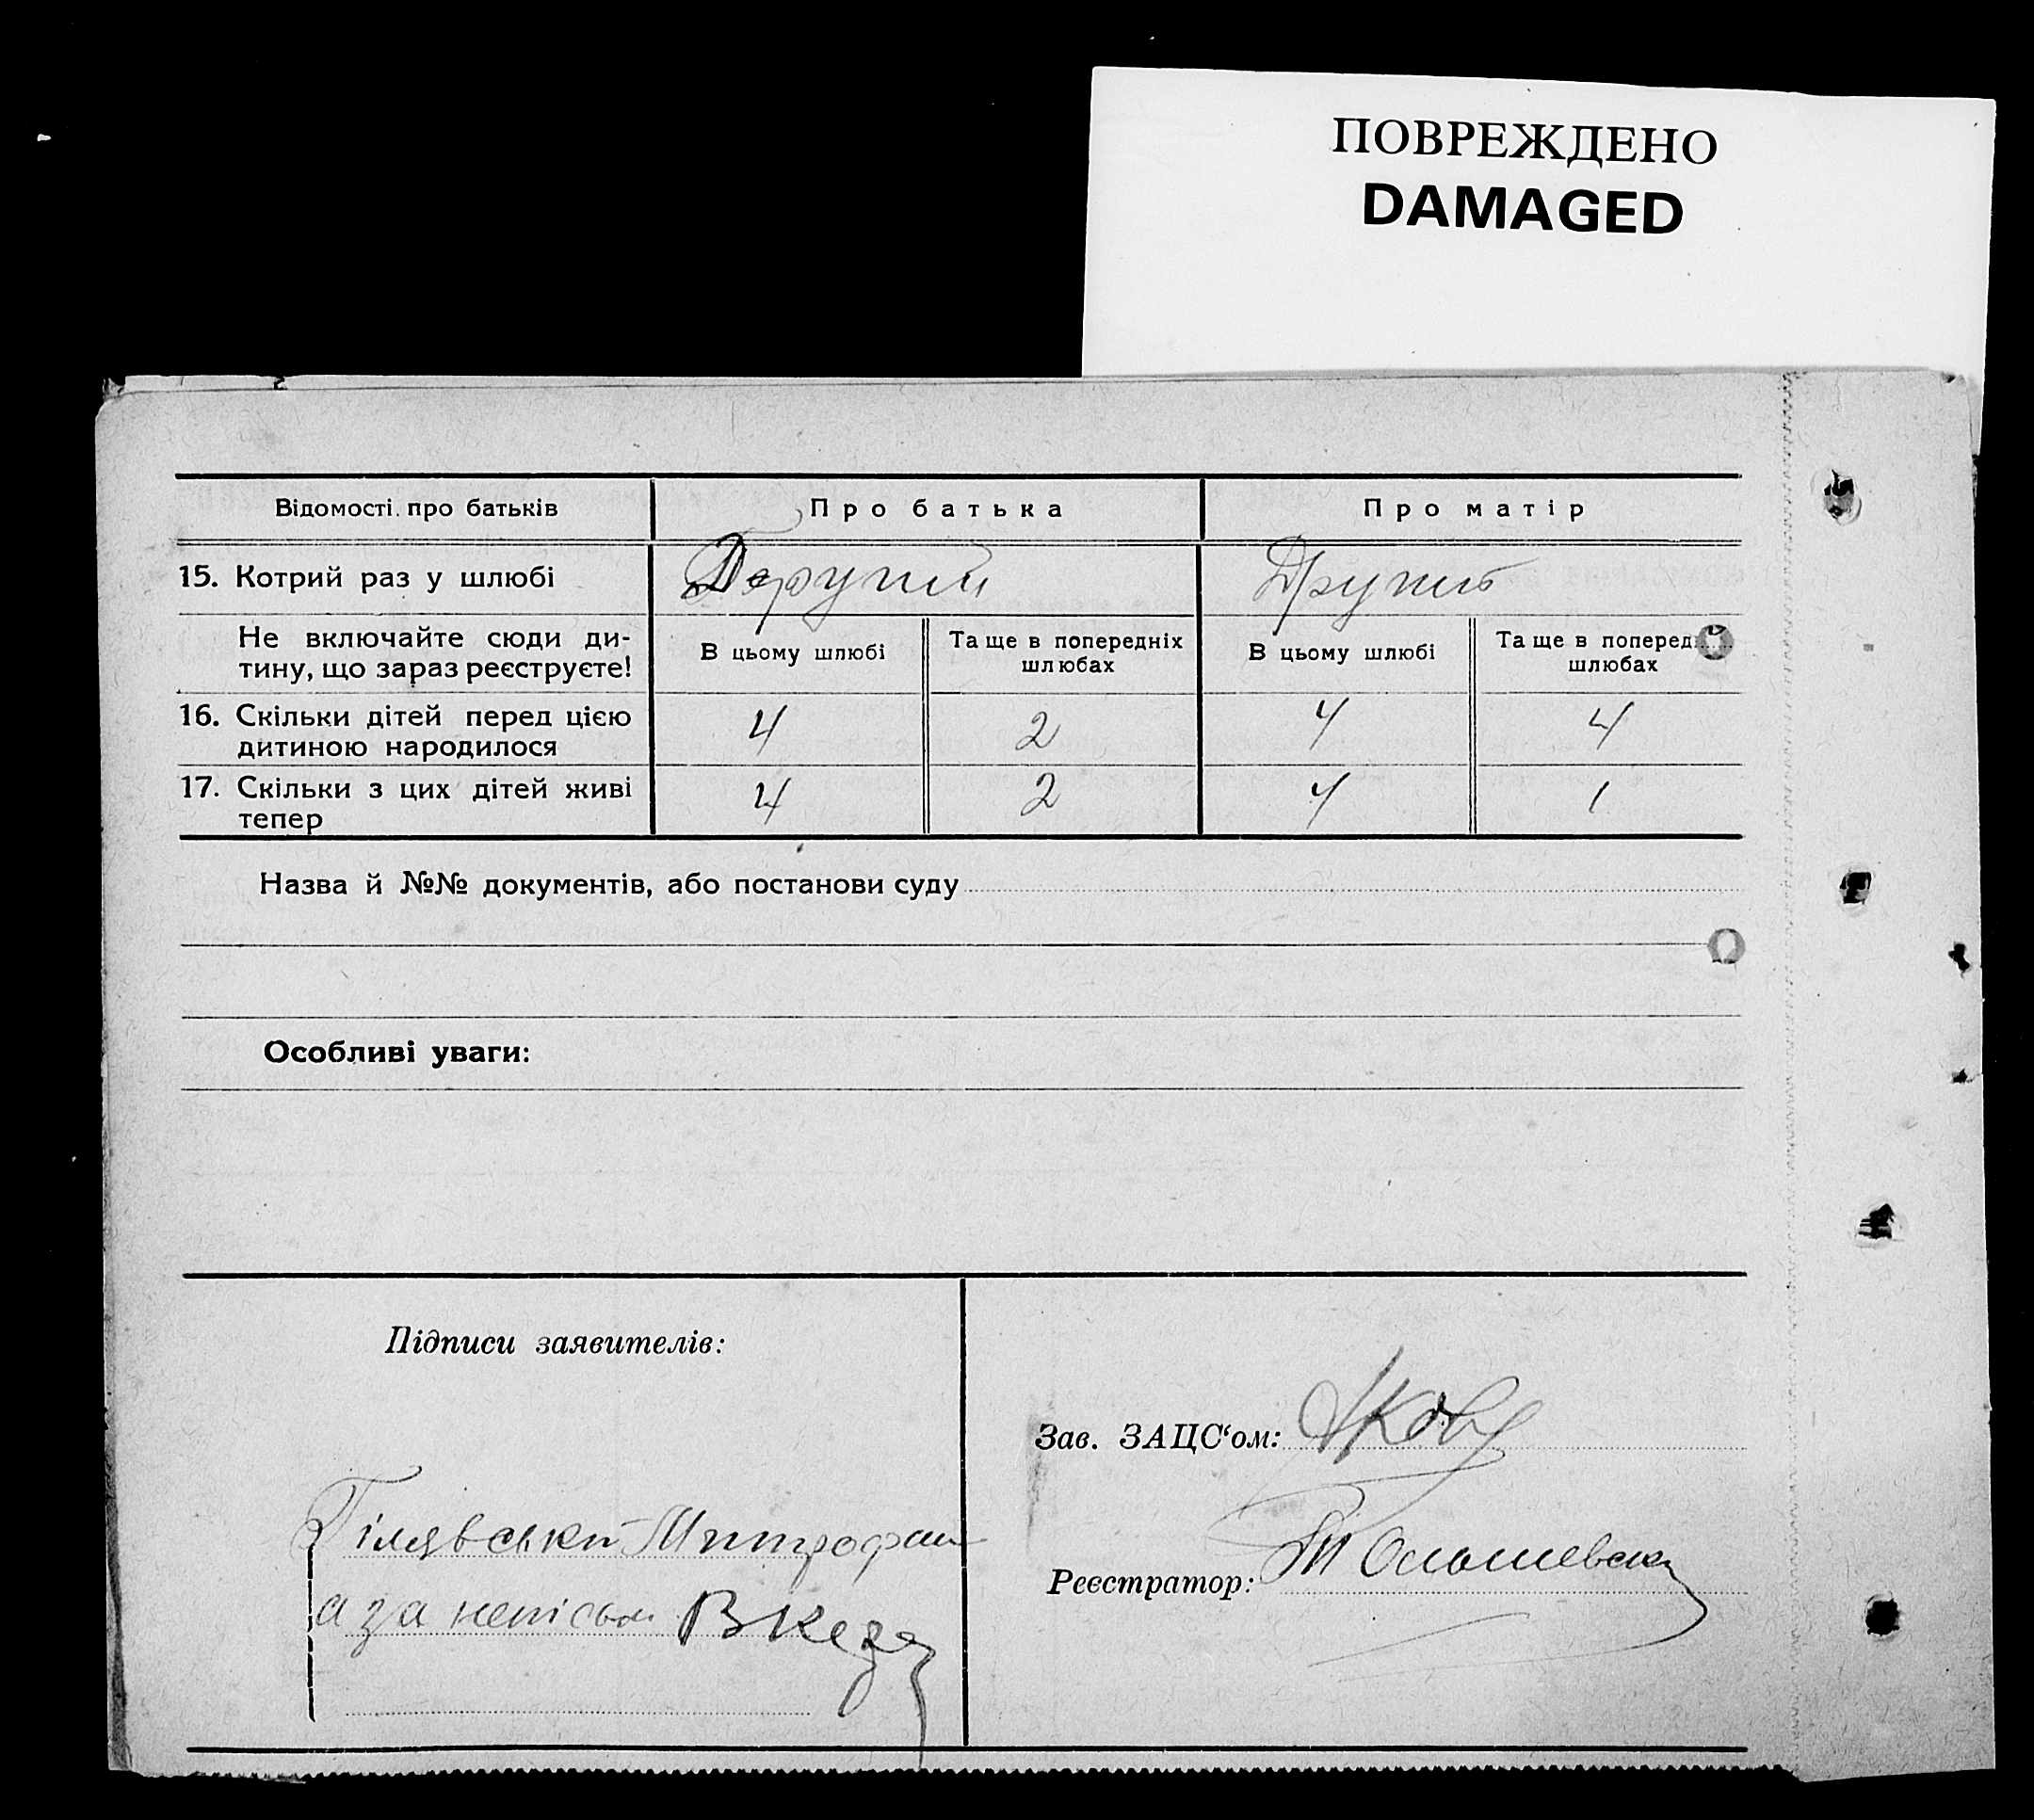 ПОВРЕЖДЕНО
DAMAGED
Відомості про батьків
Про батька
Про матір
15. Котрий раз у шлюбі
Другий
Другий
Не включайте сюди ди-
тину, що зараз реєструєте!
В цьому шлюбі
Та ще в попередніх
шлюбах
В цьому шлюбі
Та ще в поперед
шлюбах
16. Скільки дітей перед цією
дитиною народилося
4
2
4
4
17. Скільки з цих дітей живі
тепер
4
2
4
1
Назва й №№ документів, або постанови суду
Особливі уваги:
Підписи заявителів:
Гілявський Митрофан
а за неписьм
Зав. ЗАЦС‘ом:
Реєстратор: